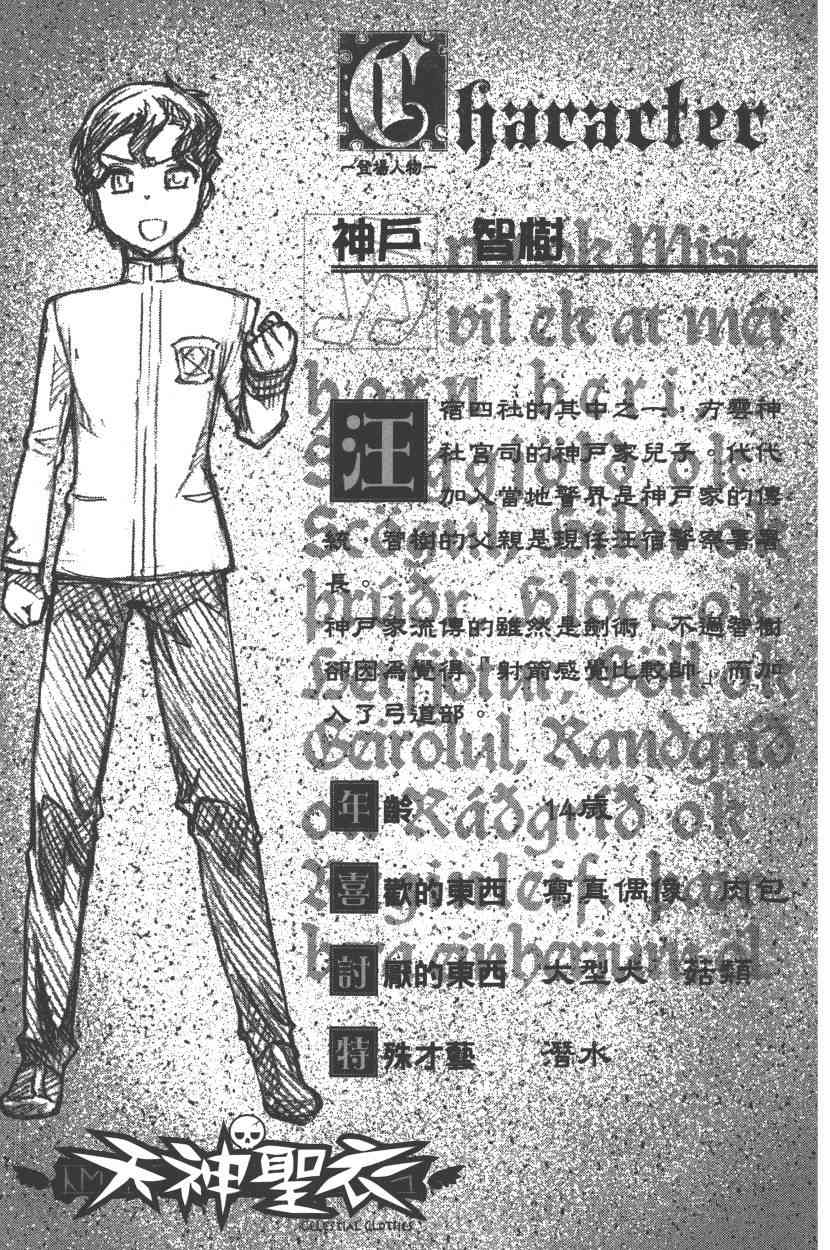 Character
─登場人物─
神戶 智樹
汪宿四社的其中之一,方雲神
社宮司的神戶家兒子。代代
加入當地警界是神戶家的傳
統,智樹的父親是現任汪宿警察署署
長。
神戶家流傳的雖然是劍術,不過智樹
卻因為覺得「射箭感覺比較帥」而加
入了弓道部。
年齡 14歲
喜歡的東西 寫真偶像 肉包
討厭的東西 大型犬 菇類
特殊才藝 潛水
天神聖衣
CELESTIAL CLOTHES
ok Mist
vil ek at mér
horn beri
Skeggjöld ok
Scögul, Hildr ok
þrúðr, Hlöcc ok
Herfjötur, Göll ok
Geirolul, Randgríð
ok Ráðgríð ok
Reginleif, þær
bera einherjum öl